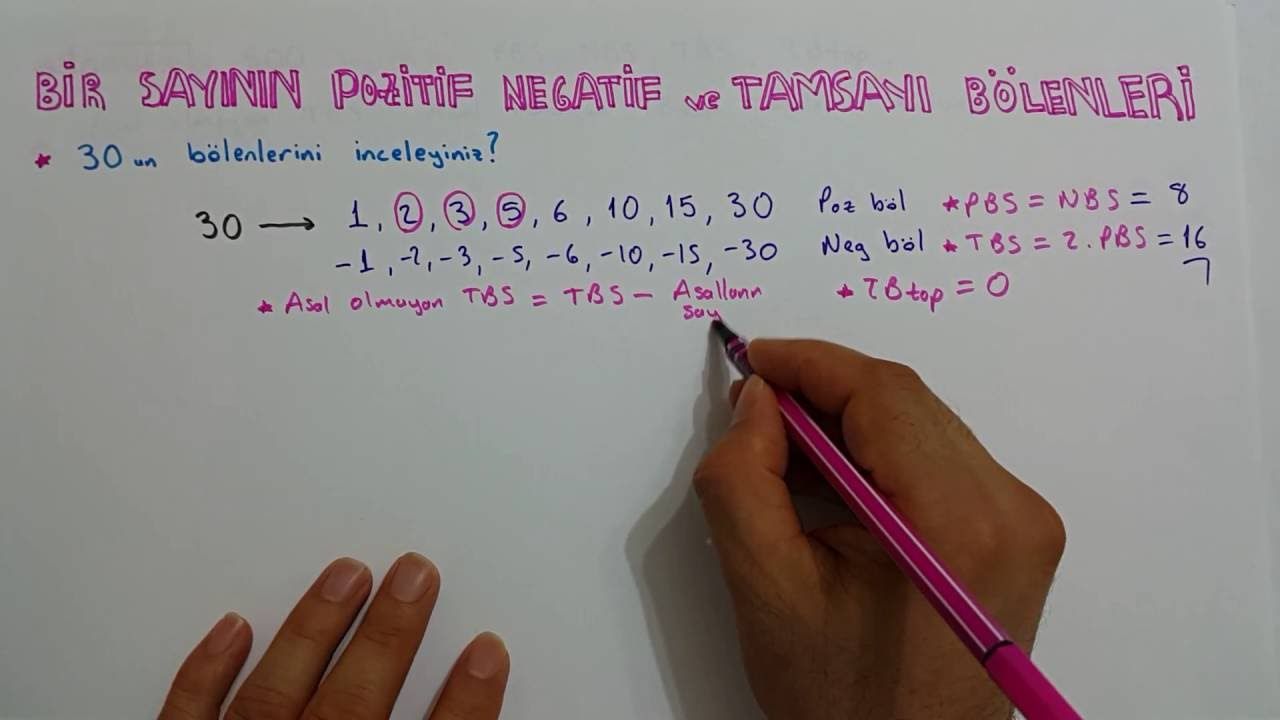 BİR SAYININ POZİTİF NEGATİF ve TAMSAYI BÖLENLERİ
* 30 un bölenlerini inceleyiniz?
30 → 1, 2, 3, 5, 6, 10, 15, 30 Poz böl * PBS = NBS = 8
-1, -2, -3, -5, -6, -10, -15, -30 Neg böl * TBS = 2. PBS = 16
* Asal olmayan TBS = TBS - Asalların * TBtop = 0
say